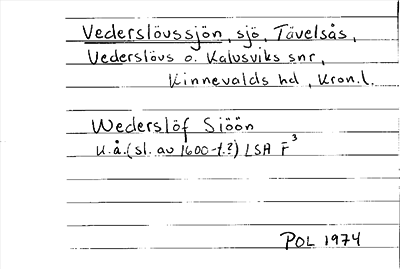 Vederslövssjön, sjö, Tävelsås,
Vederslövs o. Kalvsviks snr,
Kinnevalds hd, Kron.l.
Wederslöf Siöön
u.å. (sl. av 1600-t.?) LSA F³
POL 1974